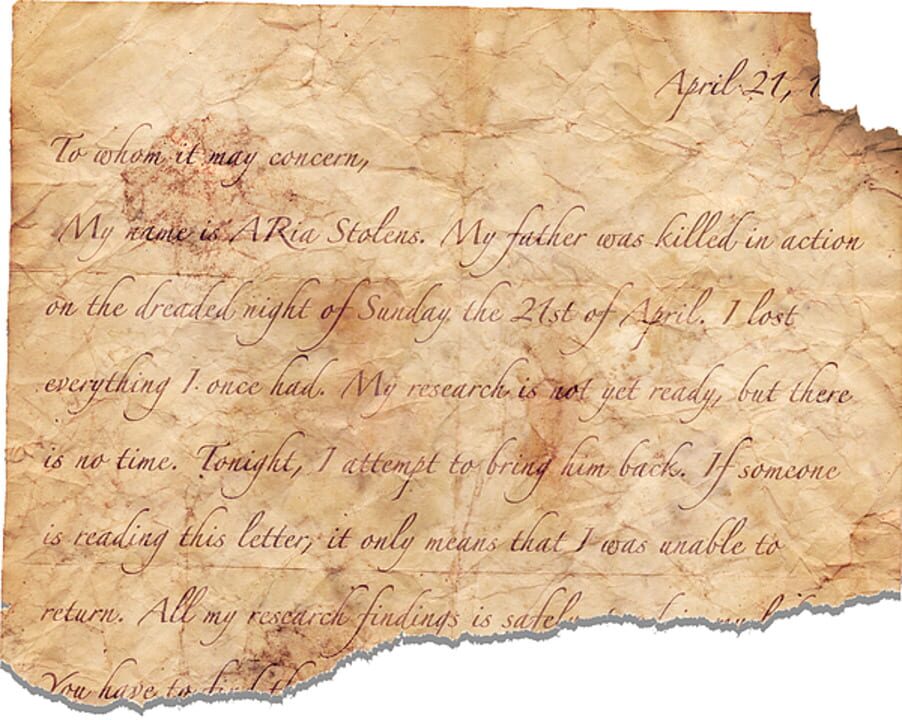 April 21, 1
To whom it may concern,
My name is ARia Stolens. My father was killed in action
on the dreaded night of Sunday the 21st of April. I lost
everything I once had. My research is not yet ready, but there
is no time. Tonight, I attempt to bring him back. If someone
is reading this letter, it only means that I was unable to
return. All my research findings is safely
You have to find